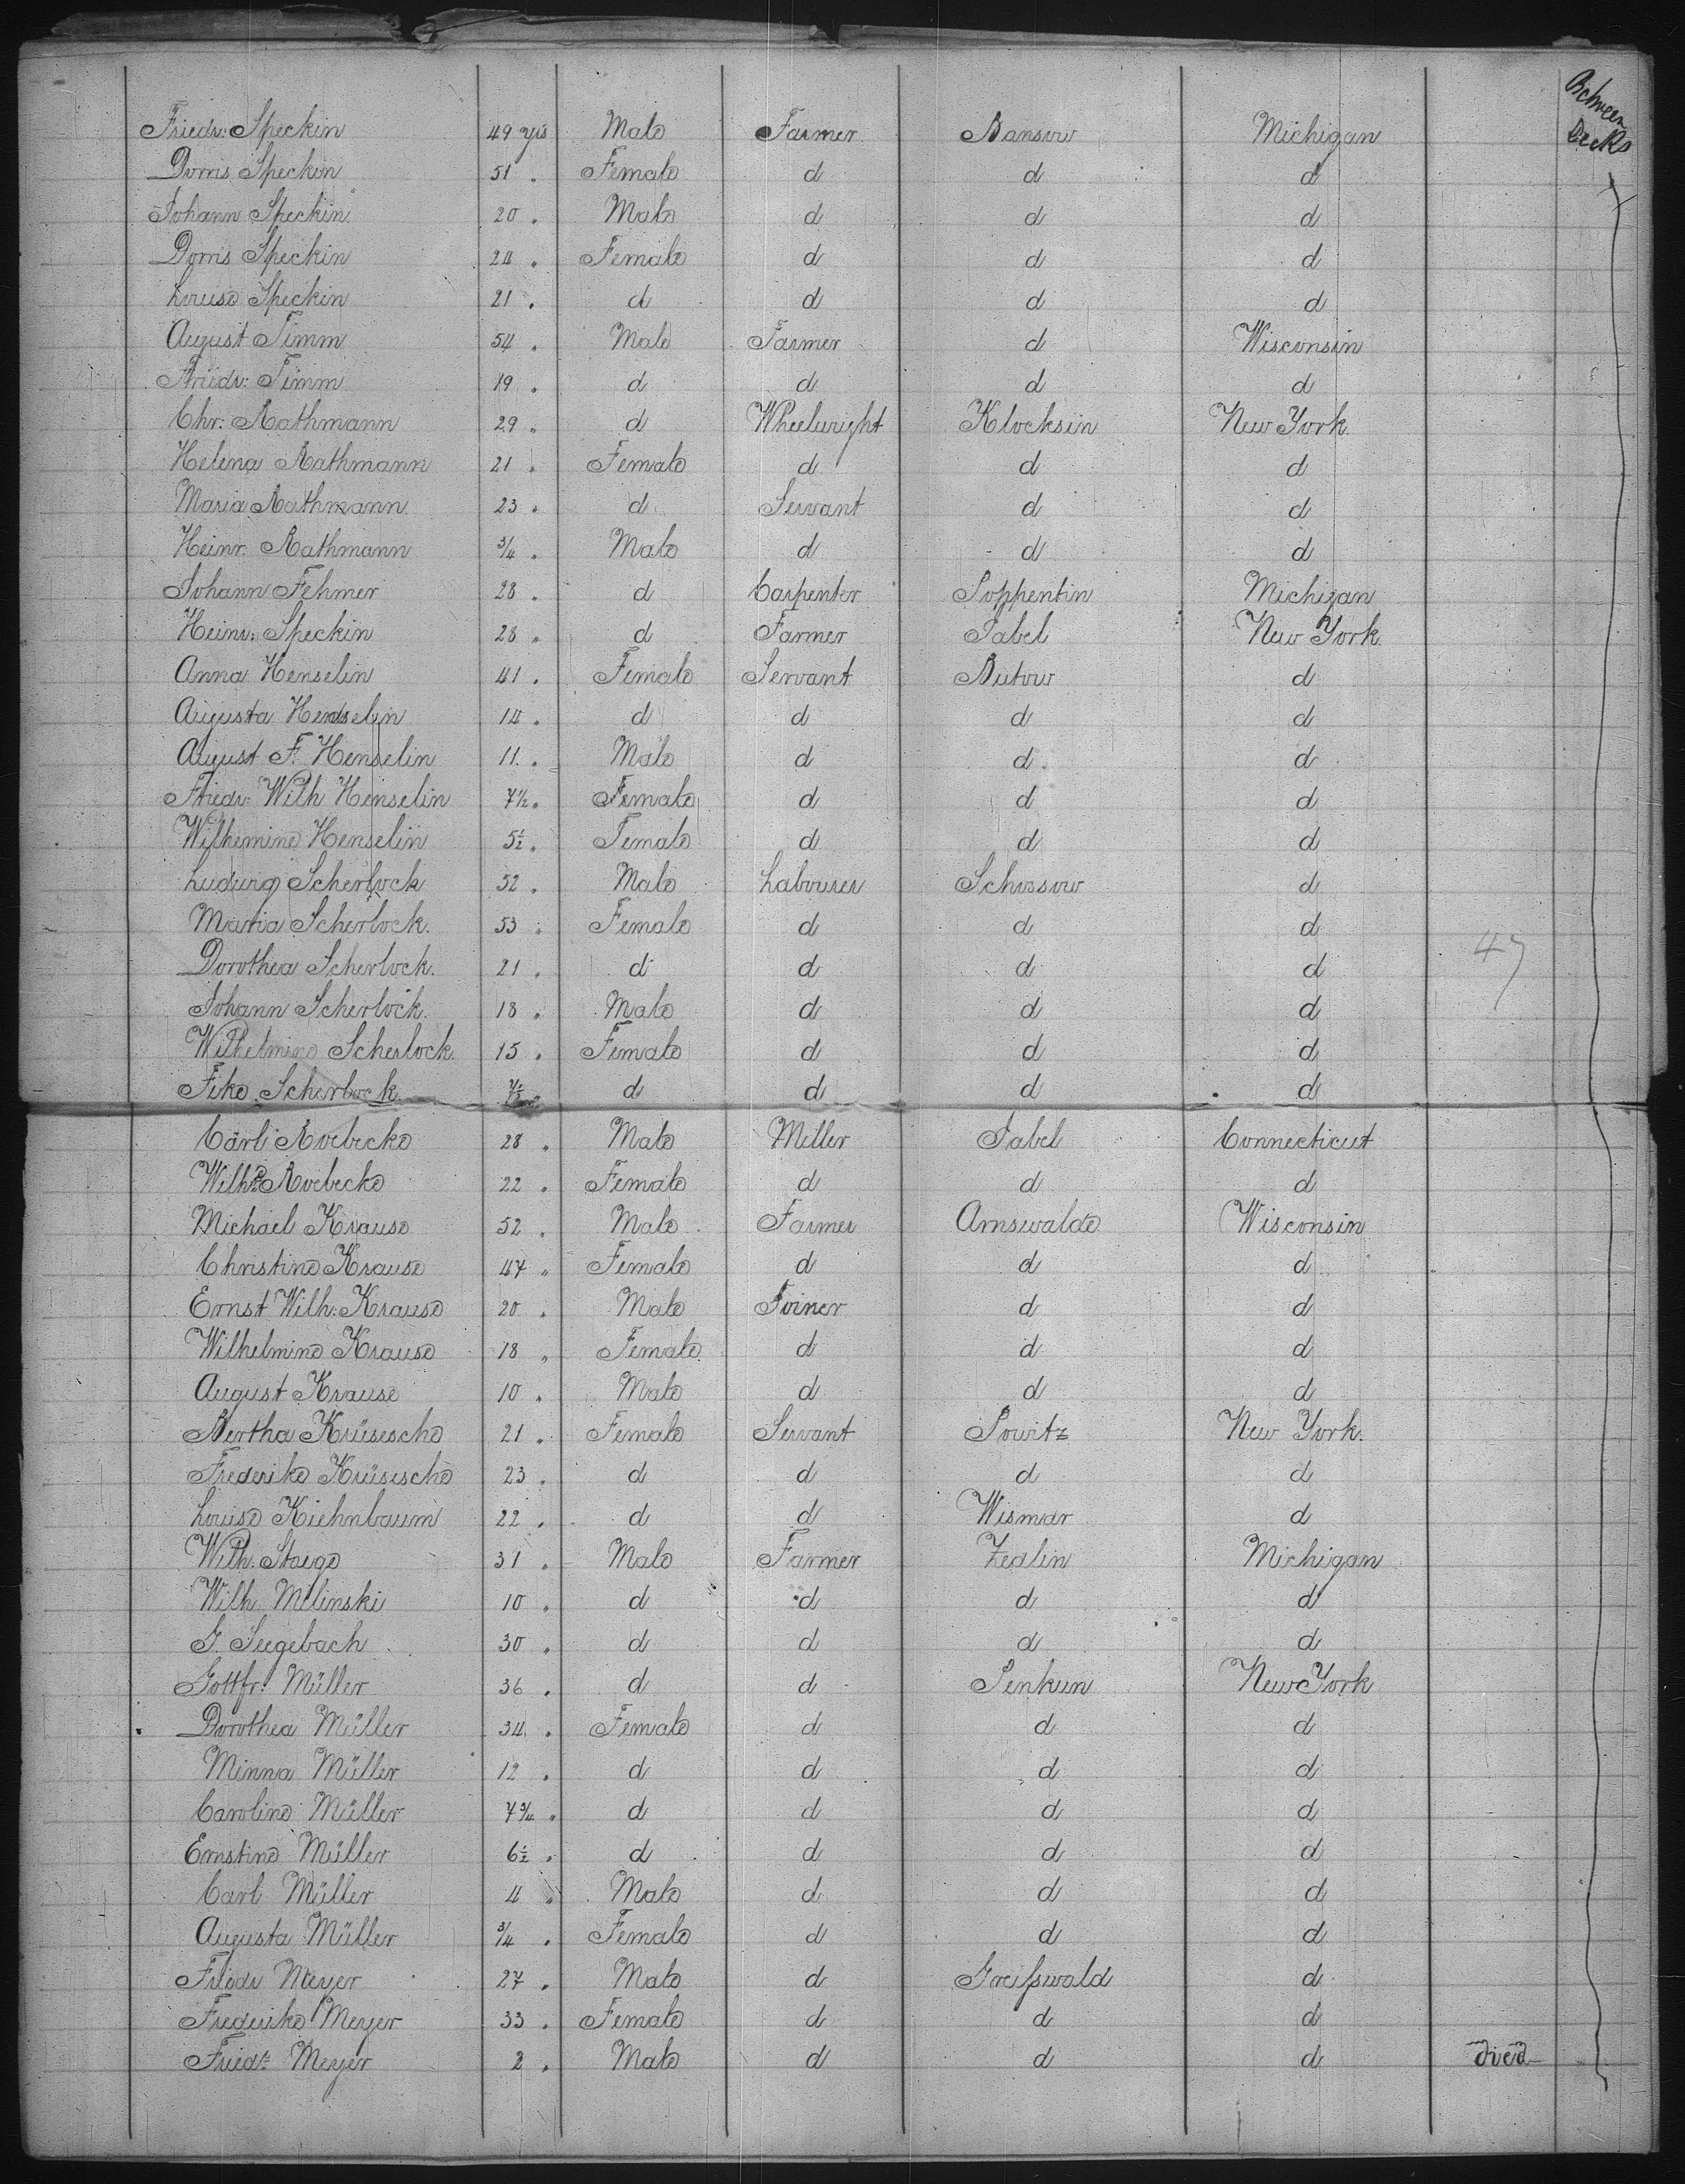 Between
Decks
Friedr: Speckin 49 yrs Male Farmer Bansow Michigan
Dorris Speckin 51 " Female d d d
Johann Speckin 20 " Male d d d
Dorris Speckin 24 " Female d d d
Louise Speckin 21 " d d d d
August Timm 54 " Male Farmer d Wisconsin
Friedr: Timm 19 " d d d d
Chr: Rathmann 29 " d Wheelwright Klocksin New York
Helena Rathmann 21 " Female d d d
Maria Rathmann 23 " d Servant d d
Heinr. Rathmann 3/4 " Male d d d
Johann Fehmer 28 " d Carpenter Poppentin Michigan
Heinr: Speckin 28 " d Farmer Jabel New York
Anna Henselin 41 " Female Servant Butow d
Augusta Henselin 14 " d d d d
August F. Henselin 11 " Male d d d
Friedr: Wilh Henselin 7½ " Female d d d
Wilhemine Henselin 5½ " Female d d d
Ludwig Scherlock 52 " Male Labourer d
Maria Scherlock 53 " Female d d d
Dorothea Scherlock 21 " d d d d
47
Johann Scherlock 18 " Male d d d
Wilhelmine Scherlock 15 " Female d d d
Fike Scherlock d d d d
Carl Roebecke 28 " Male Miller Jabel Connecticut
Wilhne Roebecke 22 " Female d d d
Michael Krause 52 " Male Farmer Arnswalde Wisconsin
Christine Krause 47 " Female d d d
Ernst Wilh: Krause 20 " Male Joiner d d
Wilhelmine Krause 18 " Female d d d
August Krause 10 " Male d d d
Bertha Krüsesche 21 " Female Servant New York
Frederike Krüsesche 23 " d d d d
Louise Kiehnbaum 22 " d d Wismar d
Wilh: Staege 31 " Male Farmer Zedlin Michigan
Wilh. Milinski 10 " d d d d
G. Seegebach 30 " d d d d
Gottfr: Müller 36 " d d Penkun New York
Dorothea Müller 34 " Female d d d
Minna Müller 12 " d d d d
Caroline Müller 7¾ " d d d d
Ernstine Müller 6½ " d d d d
Carl Müller 4 " Male d d d
Augusta Müller 3/4 " Female d d d
Friedr Meyer 27 " Male d Greifswald d
Frederike Meyer 33 " Female d d d
Friedr Meyer 2 " Male d d d died